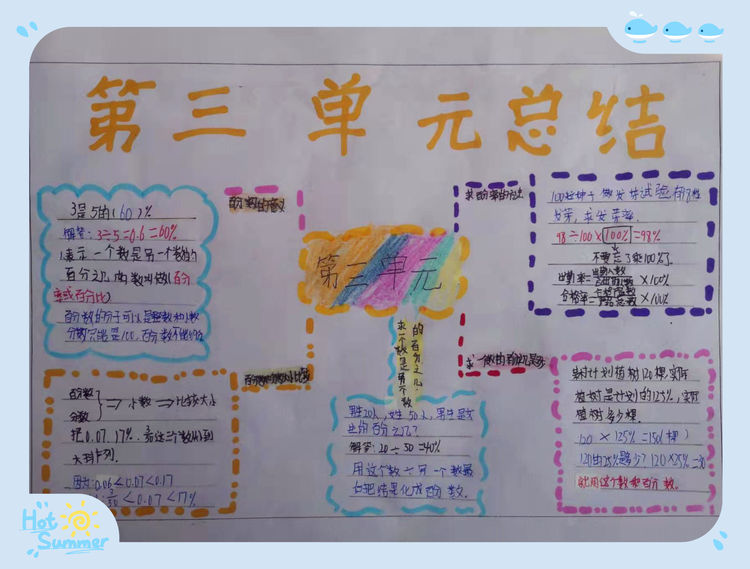 第三单元总结
3是5的(60)%
解答:3÷5=0.6=60%
表示一个数是另一个数的
百分之几的数叫做(百分
率或百分比)
百分数的分子可以是整数和小数
分数只能是100,百分数不能约分
百分数的意义
求百分率的方法
100粒种子做发芽试验有98粒
发芽,求发芽率。
98÷100×100%=98%
不要忘了乘100%
出勤率= ×100%
合格率= ×100%
第三单元
求一个数是另一个数
的百分之几
百分数
分数
⇒小数⇒比较大小
把0.07.17%.
大到小排列。
因为:0.06<0.07<0.17
<0.07<17%
男生20人,女生50人,男生是女
生的百分之几?
解答:20÷50=40%
用这个数÷另一个数最
后把结果化成百分数。
求一个数的百分之几是多少
某村计划植树120棵,实际
植树是计划的125%,实际
植树多少棵。
120×125%=150(棵)
120的25%是多少?120×25%=30
就用这个数乘百分数。
Hot
Summer